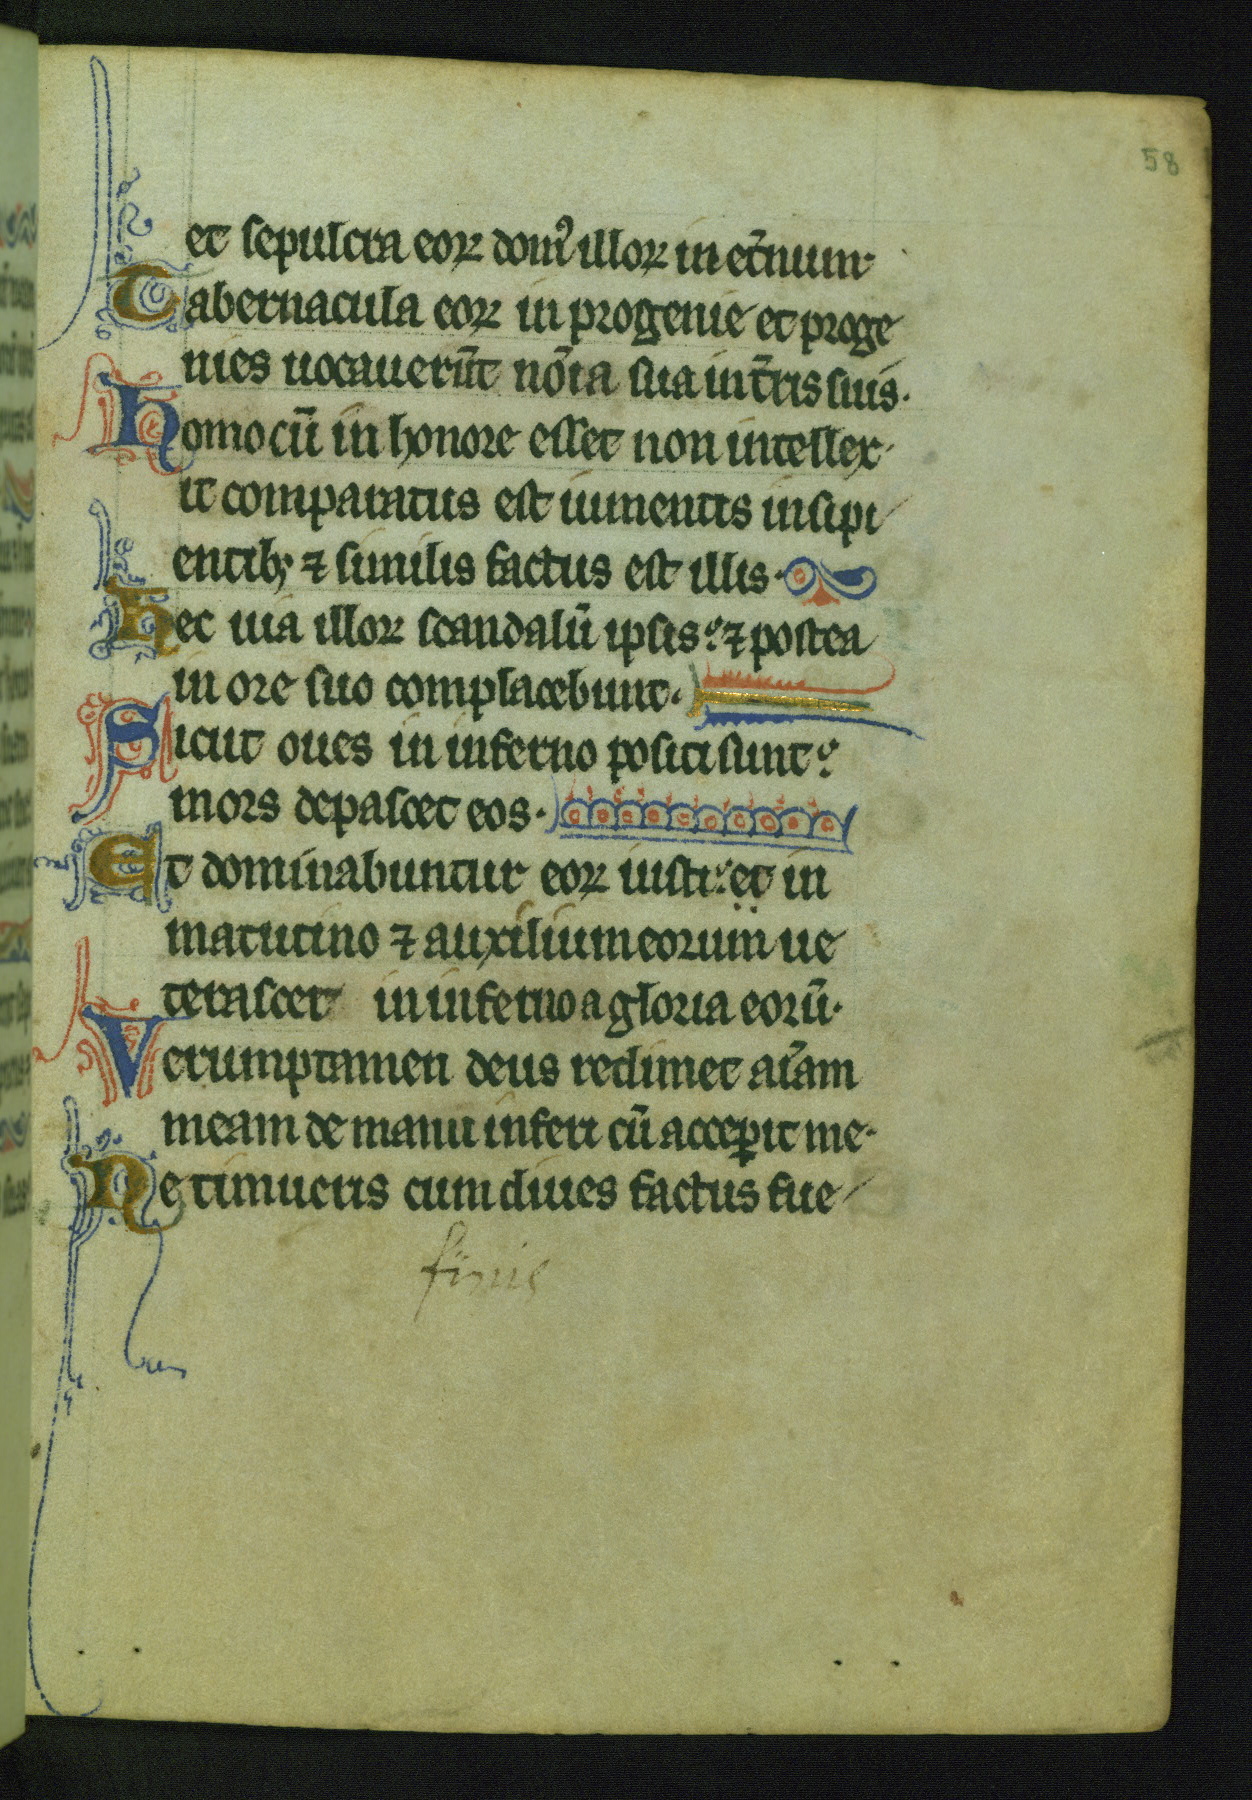 58
et sepulcra eoꝝ domꝰ illoꝝ in et̄num·
Tabernacula eoꝝ in progenie et proge
nies uocauerūt nōīa sua in t̄ris suis·
Homo cū in honore esset non intellex
it comparatus est iumentis insipi
entibꝫ ⁊ similis factus est illis·
Hec uia illoꝝ scandalū ipsis: ⁊ postea
in ore suo complacebunt·
Sicut oues in inferno positi sunt:
mors depascet eos·
Et dominabuntur eoꝝ iusti: et in
matutino ⁊ auxilium eorum ue
terascet in inferno a gloria eorū·
Verumptamen deus redimet aīam
meam de manu inferi cū acceꝑit me·
Ne timueris cum diues factus fue
finis